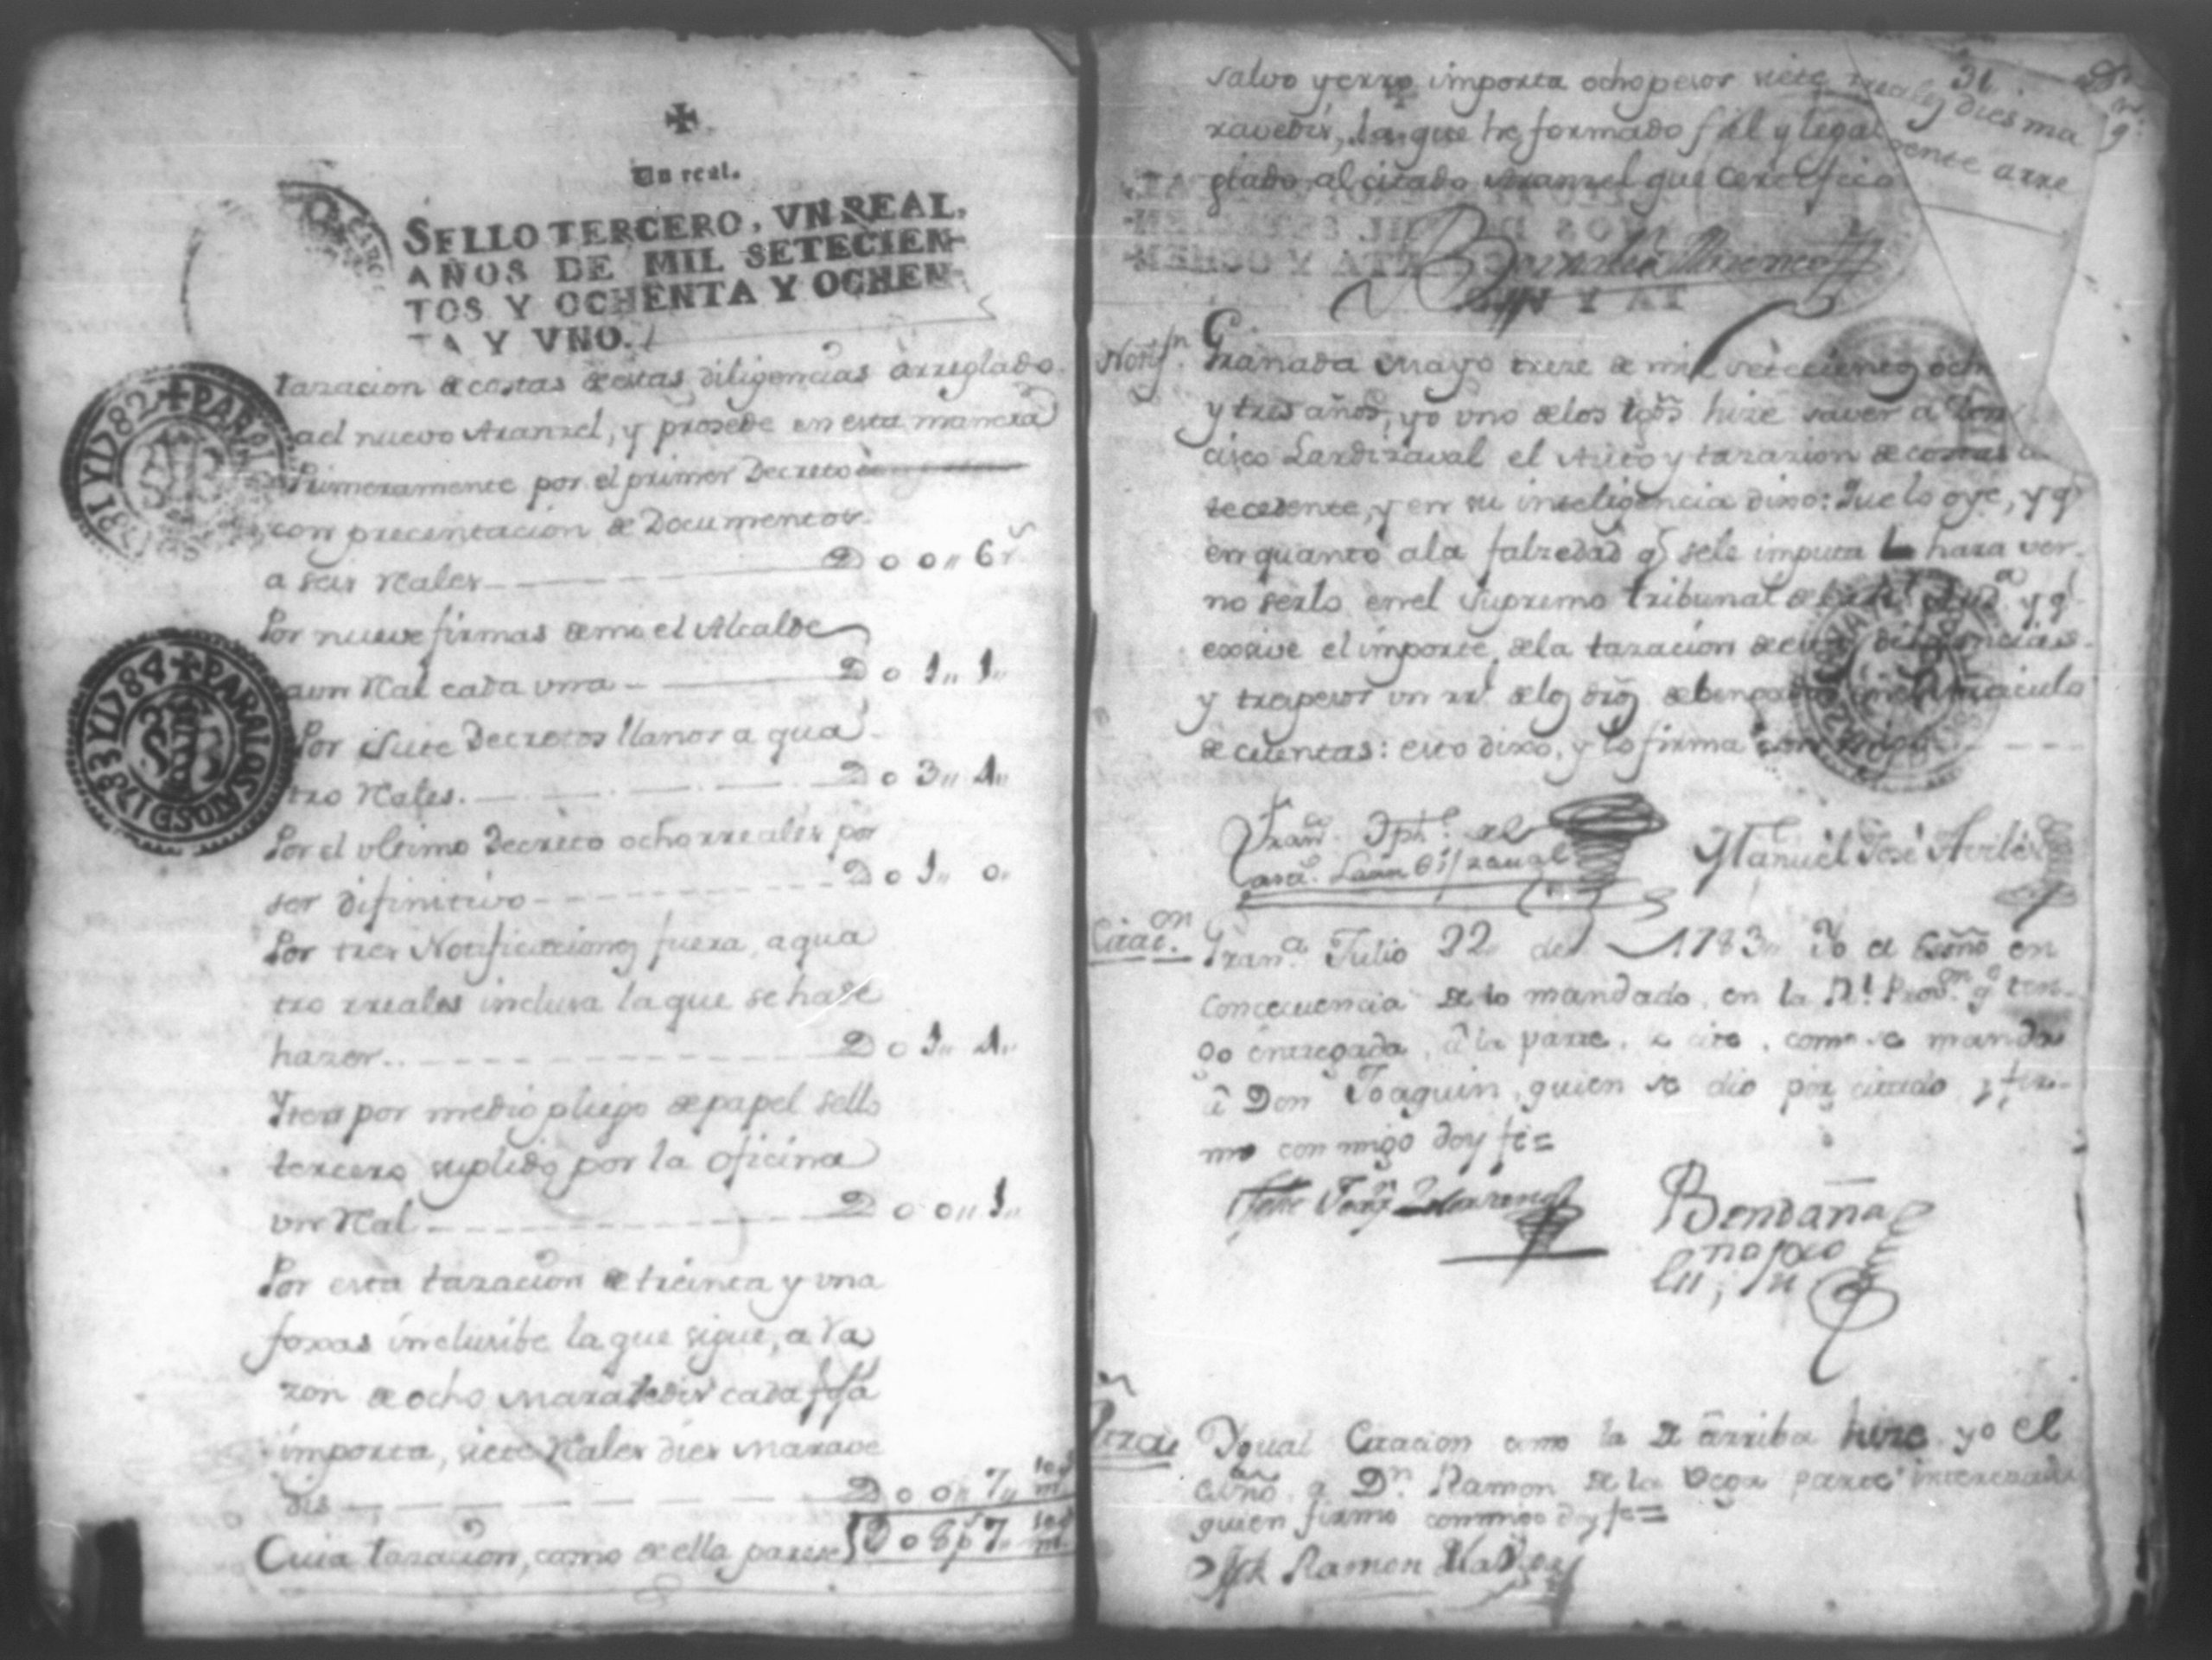 Un real.
SELLO TERCERO, VN REAL,
AÑOS DE MIL SETECIEN-
TOS Y OCHENTA Y OCHEN-
TA Y VNO.
1782 Y 1783 PARA LOS
1783 Y 1784 PARA LOS AÑOS D
tazacion de costas de estas diligencias arreglado
ael nuevo Aranzel, y prosede en esta manera
Primeramente por el primer Decreto
con precentacion de Documentos
a seis rrales D 0 0 ,, 6 r.
Por nueve firmas de mi el Alcalde
aun rral cada una D 0 1 ,, 1 ,,
Por siete Decretos llanos a qua
tro rrales. D 0 3 ,, 4 ,,
Por el ultimo Decreto ocho rreales por
ser difinitivo D 0 1 ,, 0 ,,
Por tres Notificaciones fuera, a qua
tro rreales inclusa la que se hade
hazer D 0 1 ,, 4 ,,
Yten por medio pliego de papel sello
tercero suplido por la oficina
un rral D 0 0 ,, 1 ,,
Por esta tazacion de treinta y una
foxas inclusibe la que sigue, a ra
zon de ocho maravedis cada foja
importa, siete rrales dies marave
dis D 0 0 ,, 7 ,, 10 m.
Cuia tazacion, como de ella parese D 0 8 p 7 ,, 10 m.
31
salvo yerro, importa ocho pesos siete reales dies ma
ravedis, la que he formado fiel y legalmente arre
glado al citado Aranzel que certifico
Notifn. Granada Mayo treze de mil setecientos och
y tres años, yo uno de los tgos hize saver a Don
cisco Lardizaval el Auto y tazazion de costas
tecedente, y en su inteligencia dixo: Que lo oye, y q
en quanto ala falzedad q sele imputa hara ver
no serlo en el supremo tribunal de y q
exsive el importe dela tazacion de
y tres pesos un rl. de los dros debengados
de cuentas: esto dixo, y lo firma con migo
Manuel José Avilés
Citacon. Grana. Julio 22 de 1783. Yo el Esno en
concecuencia de lo mandado, en la Rl. Provon. q ten-
go entregada, â la parte, cite, como se manda
â Don Joaquin, quien se dio por citado y fir-
mo con migo doy fe=
Bendaña
Otra Ygual Citacion como la de arriba hize yo el
esno. a Dn. Ramon de la Vega parte interezada
quien firmo conmigo doy fe=